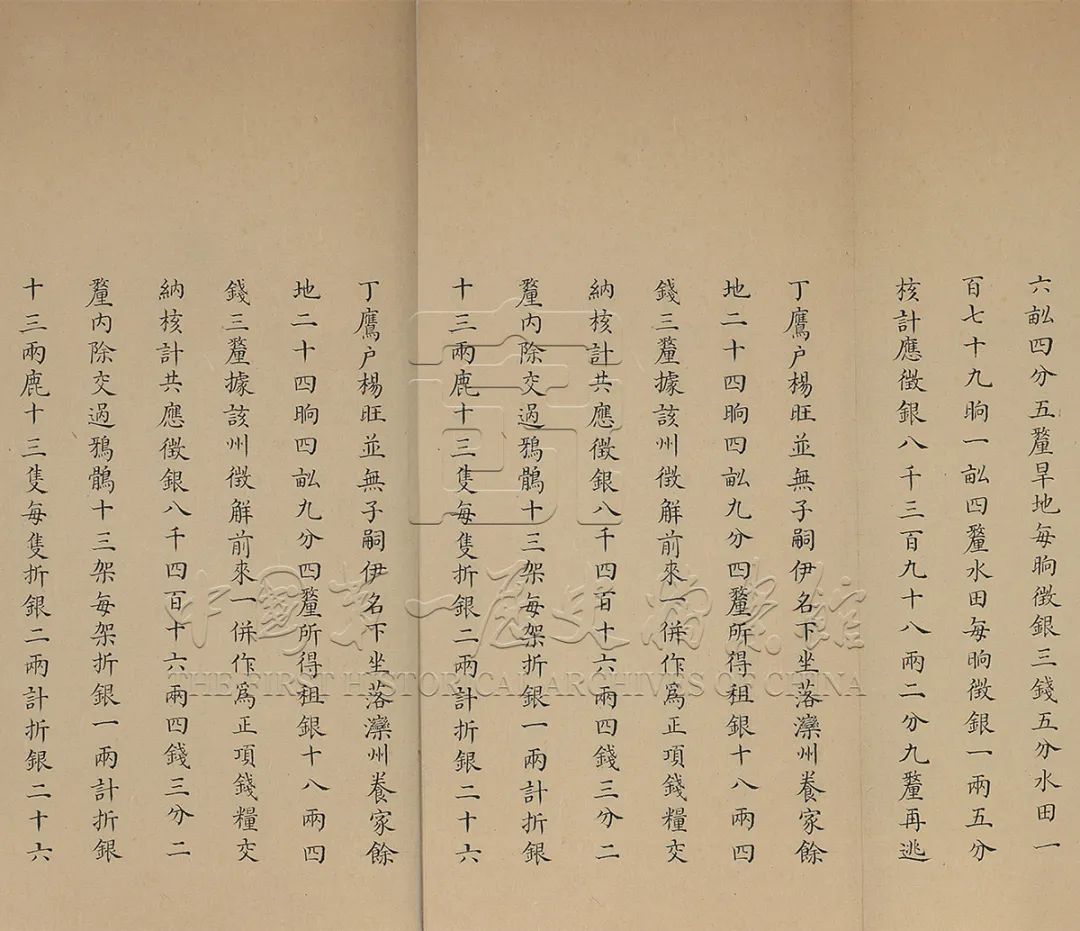 六畝四分五釐旱地每晌徵銀三錢五分水田一
百七十九晌一畝四釐水田每晌徵銀一兩五分
核計應徵銀八千三百九十八兩二分九釐再逃
丁鷹户楊旺並無子嗣伊名下坐落灤州養家餘
地二十四晌四畝九分四釐所得租銀十八兩四
錢三釐據該州徵解前來一併作爲正項錢糧交
納核計共應徵銀八千四百十六兩四錢三分二
釐內除交過鴉鶻十三架每架折銀一兩計折銀
十三兩鹿十三隻每隻折銀二兩計折銀二十六
丁鷹户楊旺並無子嗣伊名下坐落灤州養家餘
地二十四晌四畝九分四釐所得租銀十八兩四
錢三釐據該州徵解前來一併作爲正項錢糧交
納核計共應徵銀八千四百十六兩四錢三分二
釐內除交過鴉鶻十三架每架折銀一兩計折銀
十三兩鹿十三隻每隻折銀二兩計折銀二十六
中國第一歷史檔案館
THE FIRST HISTORICAL ARCHIVES OF CHINA